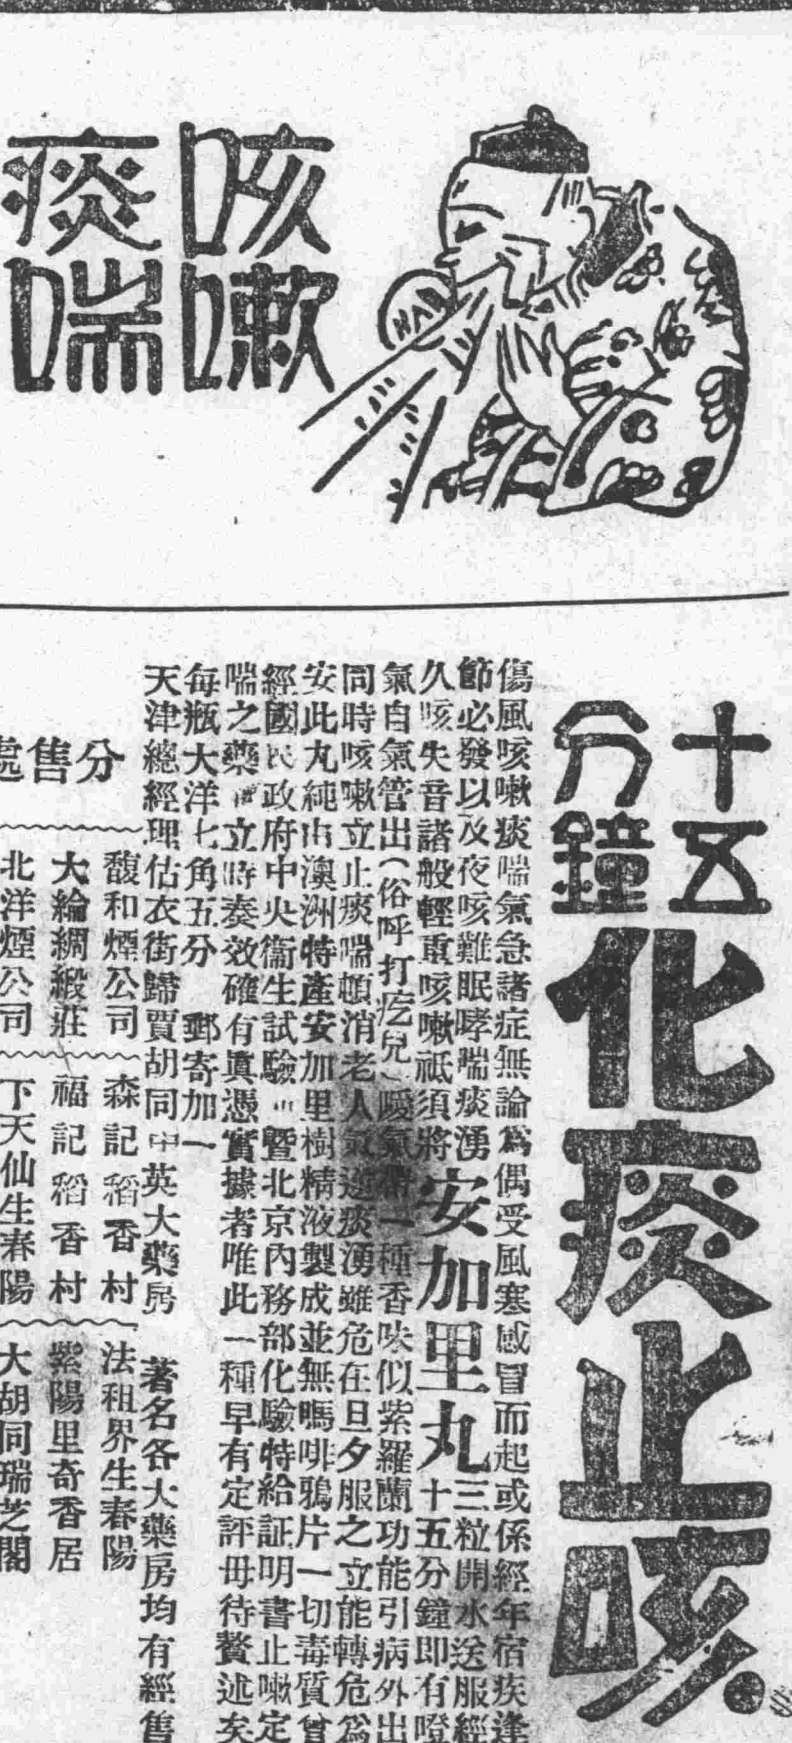 咳嗽
痰喘
HAD
十五
分鐘
化痰止咳
傷風咳嗽痰喘氣急諸症無論為偶受風寒感冒而起或係經年宿疾逢
節必發以及夜咳難眠哮喘痰湧
久咳失音諸般輕重咳嗽祗須將安加里丸三粒開水送服經
十五分鐘即有噯
氣自氣管出(俗呼打疙兒)噯氣帶一種香味似紫羅蘭功能引病外出
同時咳嗽立止痰喘頓消老人氣逆痰湧雖危在旦夕服之立能轉危為
安此丸純由澳洲特產安加里樹精液製成並無嗎啡鴉片一切毒質曾
經國民政府中央衞生試驗 暨北京內務部化驗特給証明書止嗽定
喘之藥 立時奏效確有眞憑實據者唯此一種早有定評毋待贅述矣
每瓶大洋七角五分 郵寄加一
天津總經理估衣街歸賈胡同中英大藥房 著名各大藥房均有經售
分售處
馥和煙公司 森記稻香村 法租界生春陽
大綸綢緞莊 福記稻香村 紫陽里奇香居
北洋煙公司 下天仙生春陽 大胡同瑞芝閣